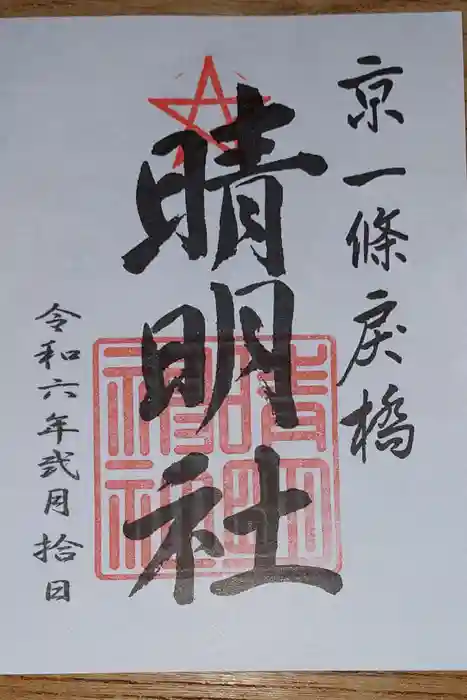 京一條戻橋
晴明社
晴明神社
令和六年弐月拾日